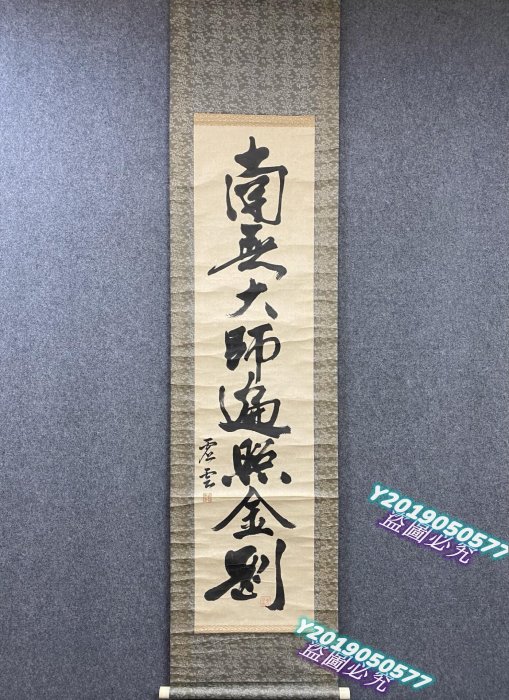 南無大師遍照金剛
虛雲
Y2019050577
盜圖必究
Y2019050577
盜圖必究